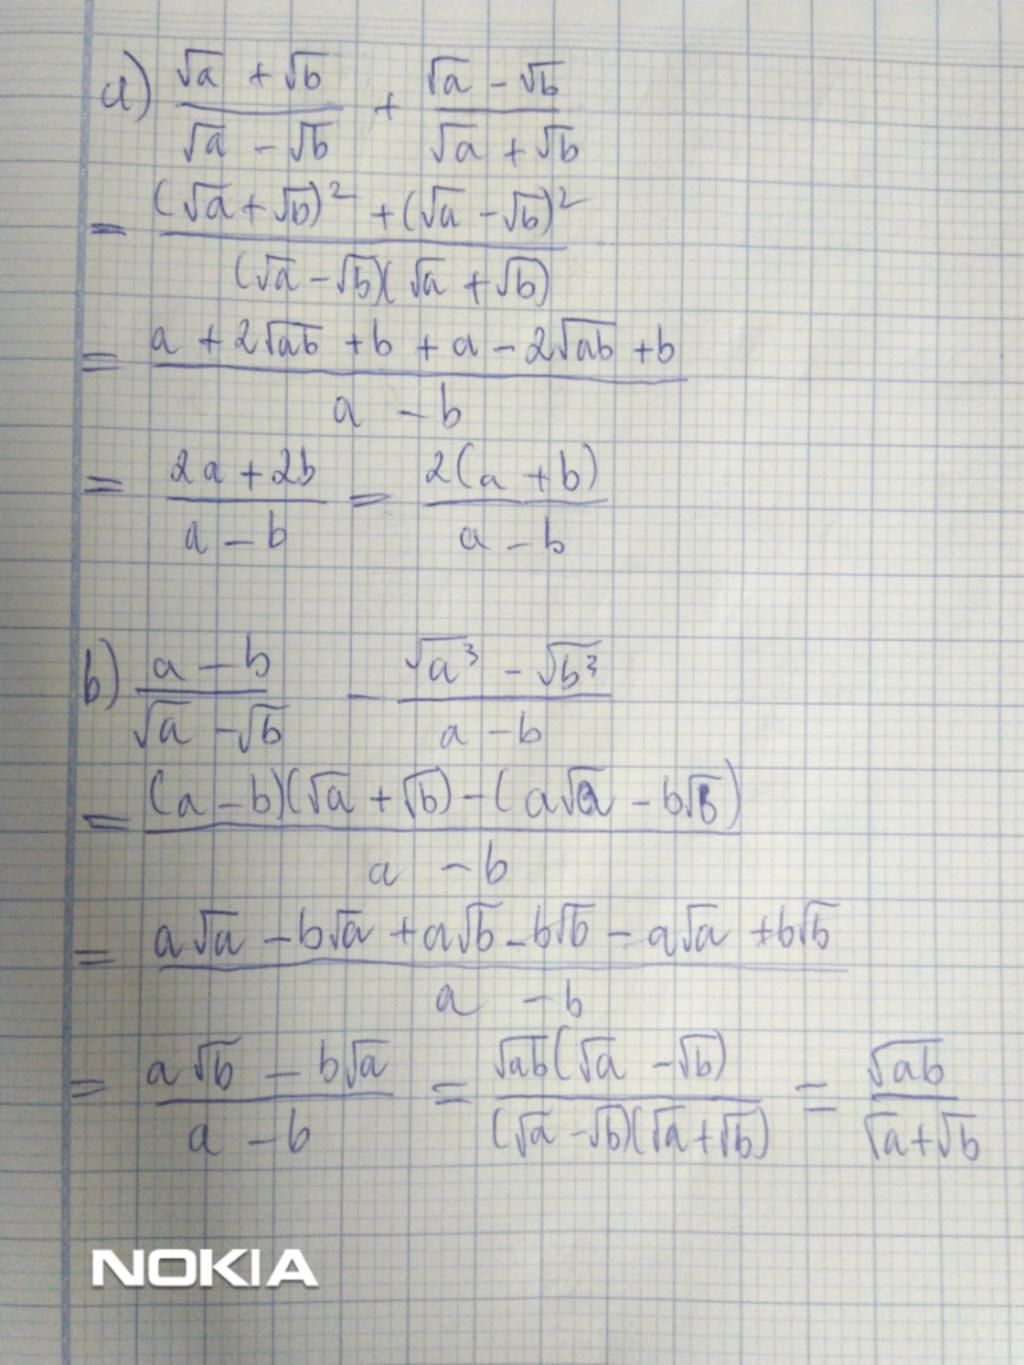 a) (√a + √b)/(√a - √b) + (√a - √b)/(√a + √b)
= ((√a + √b)² + (√a - √b)²)/((√a - √b)(√a + √b))
= (a + 2√ab + b + a - 2√ab + b)/(a - b)
= (2a + 2b)/(a - b) = 2(a + b)/(a - b)
b) (a - b)/(√a - √b) - (√a³ - √b³)/(a - b)
= ((a - b)(√a + √b) - (a√a - b√b))/(a - b)
= (a√a - b√a + a√b - b√b - a√a + b√b)/(a - b)
= (a√b - b√a)/(a - b) = √ab(√a - √b)/((√a - √b)(√a + √b)) = √ab/(√a + √b)
NOKIA